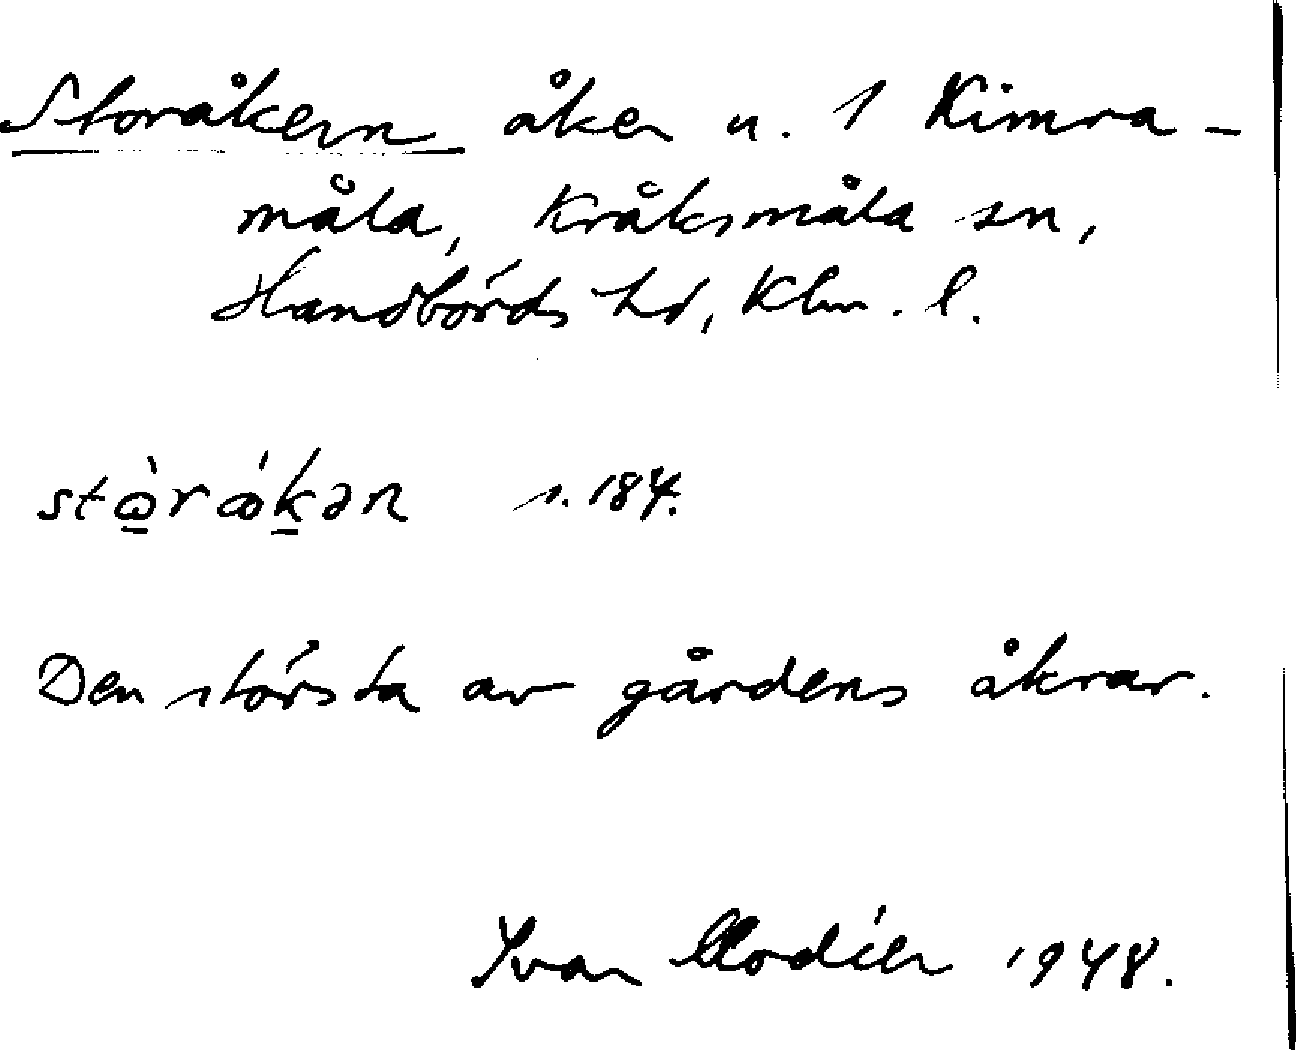 Storåkern åker u. 1 Kimra-
måla, Kråksmåla sn,
Handbörds hd, Klm. l.
stὼ̲rǻk̲ən s. 184.
Den största av gårdens åkrar.
Ivar Modéer 1948.